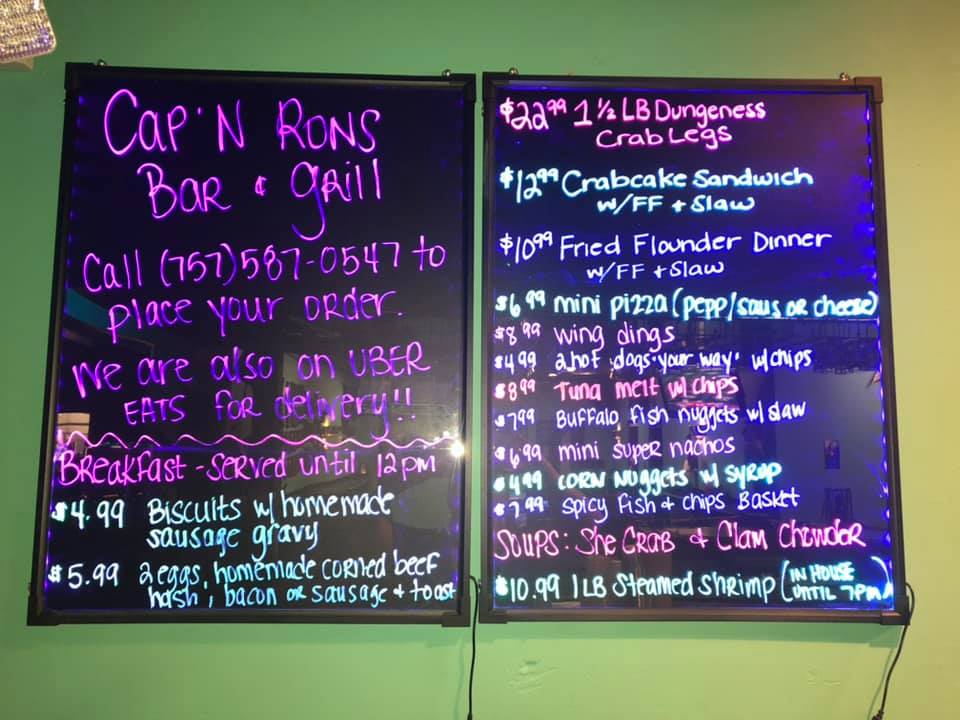 Cap'N Rons
Bar & grill
Call (757)587-0547 to
place your order.
We are also on UBER
EATS for delivery!!
Breakfast - served until 12pm
$4.99 Biscuits w/ homemade
sausage gravy
$5.99 2 eggs, homemade corned beef
hash, bacon or sausage & toast
$22.99 1 1/2 LB Dungeness
Crab Legs
$12.99 Crabcake Sandwich
w/FF + Slaw
$10.99 Fried Flounder Dinner
w/FF + Slaw
$6.99 mini pizza (pepp/saus or cheese)
$8.99 wing dings
$4.99 2 hot dogs "your way" w/chips
$8.99 Tuna melt w/ chips
$7.99 Buffalo fish nuggets w/ slaw
$6.99 mini super nachos
$4.99 corn nuggets w/ syrup
$7.99 spicy fish & chips Basket
Soups: She Crab & Clam Chowder
$10.99 1 LB Steamed Shrimp (IN HOUSE
UNTIL 7PM)